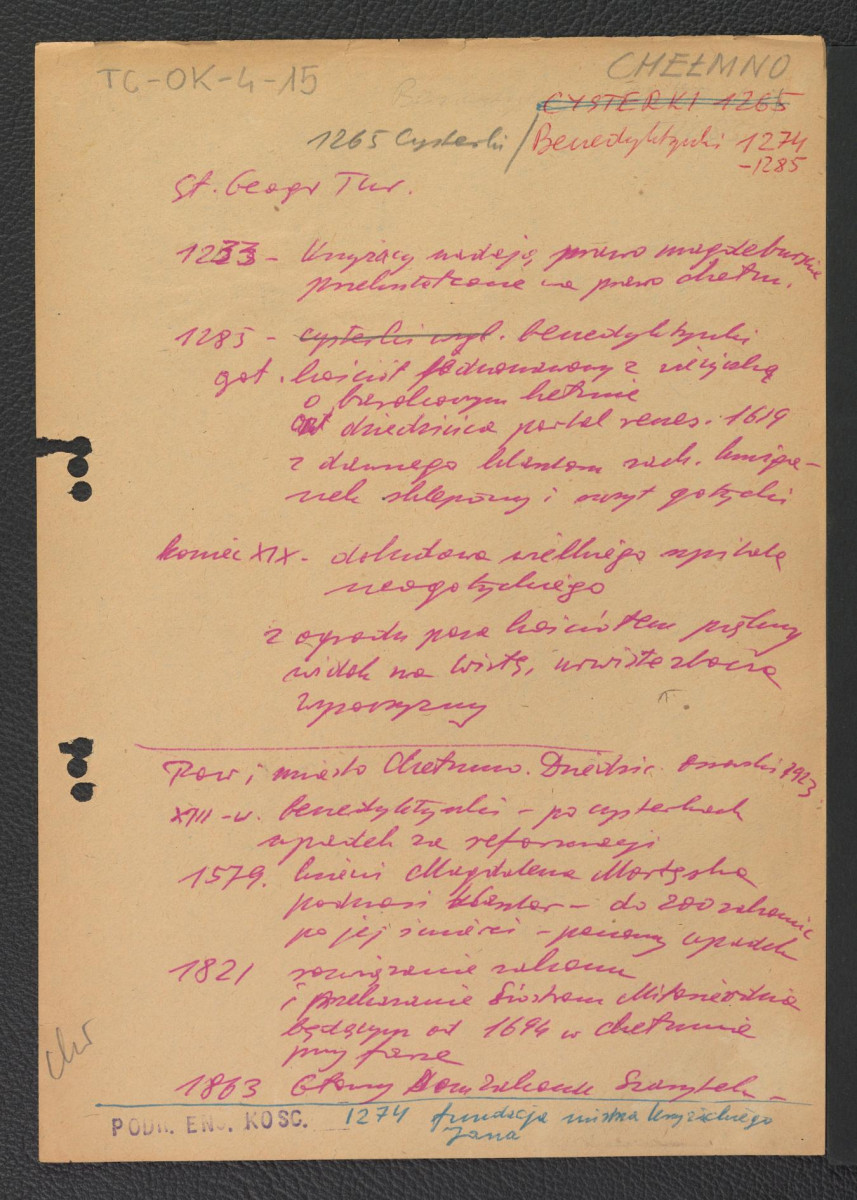 TC-OK-4-15
CHEŁMNO
CYSTERKI 1265
1265 Cysterki / Benedyktynki 1274
-1285
Sł. Geogr Tur.
1233 - Krzyżacy nadają prawo magdeburskie
przekształcone na prawo chełm.
1285 - cysterki wzgl. benedyktynki
got. kościół jednonawowy z wieżyczką
o barokowym hełmie
od dziedzińca portal renes. 1619
z dawnego klasztoru zach. krużga-
nek sklepiony i szczyt gotycki
koniec XIX - dobudowa wielkiego szpitala
neogotyckiego
z ogrodu poza kościołem piękny
widok na Wisłę, urwiste zbocza
Pow i miasto Chełmno. Dziedzic. 1923
XIII-w. benedyktynki - po cysterkach
upadek za reformacji
1579. ksieni Magdalena Mortęska
podnosi klasztor - do 200 zakonnic
po jej śmierci - ponowny upadek
1821 rozwiązanie zakonu
i przekazanie Siostrom Miłosierdzia
będącym od 1694 w Chełmnie
przy farze
1863 Główny Dom Zakonu Szarytek -
chr
PODR. ENC. KOŚC. 1274 fundacja mistrza krzyżackiego
Jana